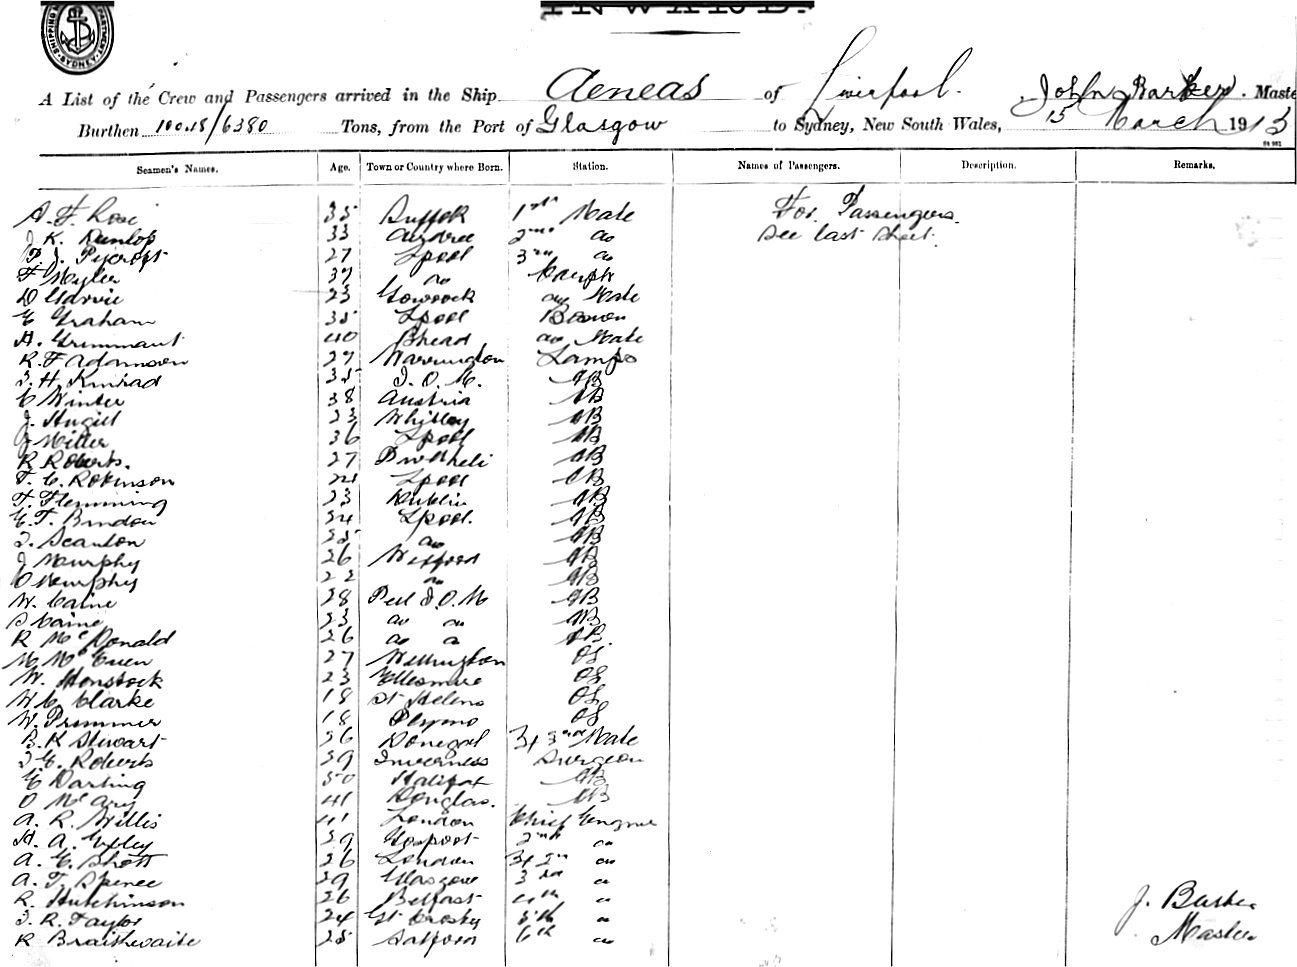 INWARD.
SHIPPING DEPARTMENT SYDNEY
A List of the Crew and Passengers arrived in the Ship Aeneas of Liverpool. John Barker. Maste
Burthen 10018/6380 Tons, from the Port of Glasgow to Sydney, New South Wales, 15 March 1913
Seamen's Names. Age. Town or Country where Born. Station. Names of Passengers. Description. Remarks.
A. F. Rose 35 Suffolk 1st Mate For Passengers
J. K. Dunlop 33 Airdree 2nd do See last sheet.
P. J. Pycroft 27 Lpool 3rd do
F Myler 37 do
D Garvie 23 Gowrock do Mate
E Graham 35 Lpool Bosun
H. Grimmant 40 Bhead do Mate
R. F Adamson 27 Warrington Lamps
J. H. Kinrad 35 I. O. M. AB
C Winter 38 Austria AB
J. Hugill 23 Whitby AB
J Miller 36 Lpool AB
R Roberts. 27 Pwllheli AB
T. C. Robinson Lpool AB
F. Flemming 23 Dublin AB
E. T. Brindon 24 Lpool. AB
J. Scanlon 25 do AB
J Murphy 26 Wexford AB
O Murphy 22 do AB
W. Caine 28 Peel I. O. M AB
S Caine 23 do do AB
R McDonald 26 do do AB.
M McEuen 27 Wellington OS
W. Honstock 23 Ellesmere OS
W C Clarke 18 St Helens OS
W. Primmer 18 OS
B. K Stewart 26 Donegal 3rd Mate
J. E. Roberts 39 Inverness Surgeon
E Darling 50 Halifax AB
O McAry 41 Douglas. AB
A. R. Willis 41 London Chief Engine
H. A. Exley 39 Gosport 2nd do
A. E. Shott 26 London do
A. T. Spence 29 Glasgow 3rd do
R. Hutchinson 26 Belfast 4th do J. Barker
J. R. Taylor 24 Gt Crosby 5th do Master
R Braithwaite 25 Salford 6th do